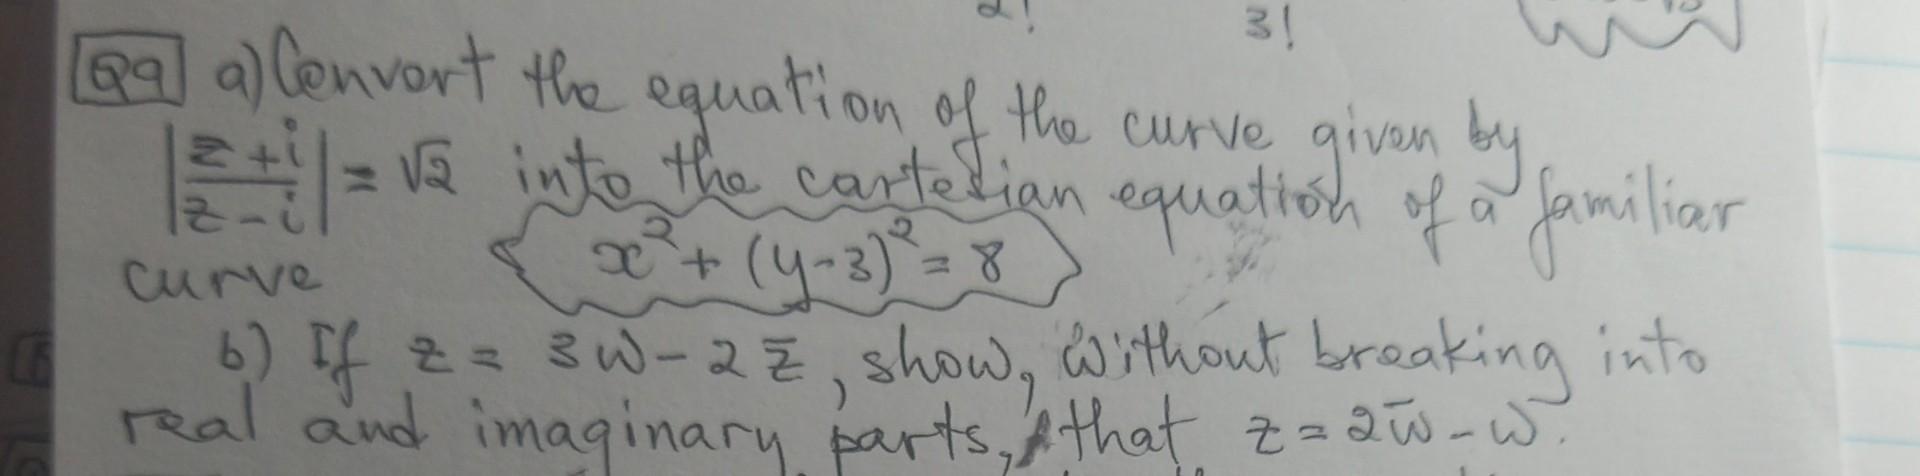 3!
Q9 a) Convert the equation of the curve given by
|z+i / z-i| = √2 into the cartesian equation of a familiar
curve x² + (y-3)² = 8
b) If z = 3w - 2z̄, show, without breaking into
real and imaginary parts, that z = 2w̄ - w.